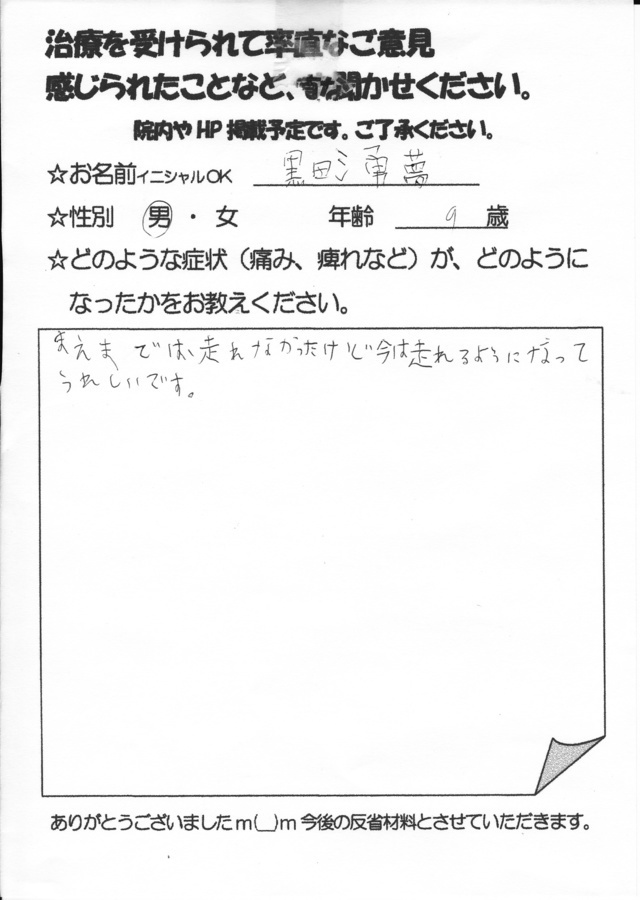 治療を受けられて率直なご意見
感じられたことなど、お聞かせください。
院内やHP掲載予定です。ご了承ください。
☆お名前イニシャルOK 黒田 勇夢
☆性別 男・女 年齢 9 歳
☆どのような症状（痛み、痺れなど）が、どのように
なったかをお教えください。
まえまでは、走れなかったけど今は走れるようになって
うれしいです。
ありがとうございましたm(__)m今後の反省材料とさせていただきます。